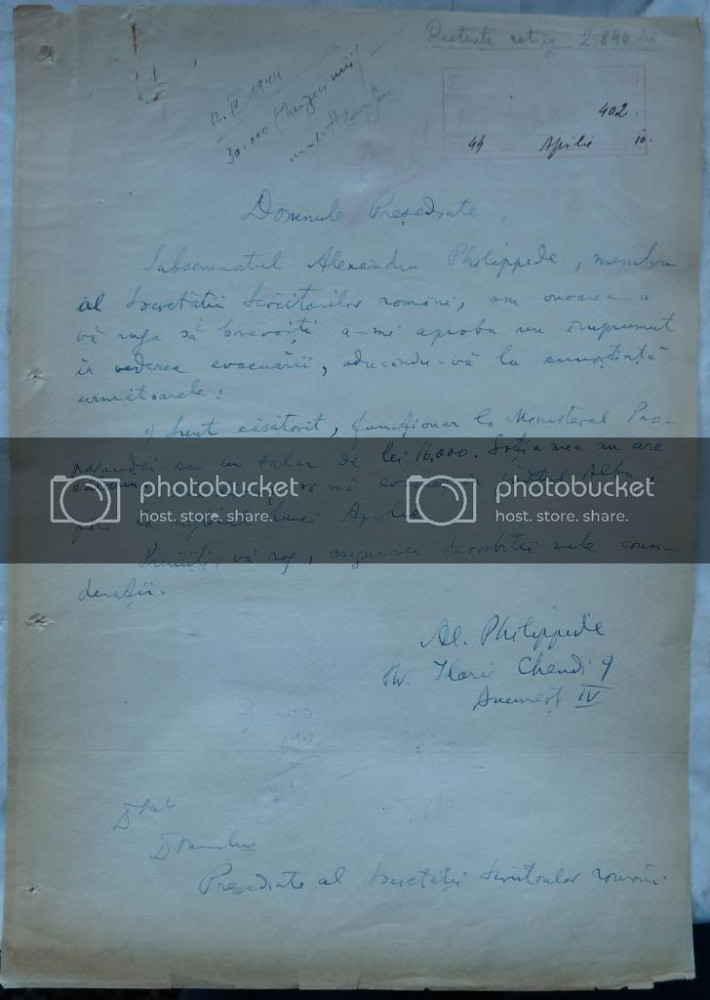 Restanță cotiz. 2.840 lei
12.IV.1944
30.000 (treizeci mii)
402.
44 Aprilie 10.
Domnule Președinte,
Subsemnatul Alexandru Philippide, membru
al Societății Scriitorilor români, am onoarea a
vă ruga să binevoiți a-mi aproba un împrumut
în vederea evacuării, aducându-vă la cunoștință
următoarele:
1) Sunt căsătorit, funcționar la Ministerul Pro-
pagandei cu un salar de lei 16.000. Soția mea nu are
mă Alba
lunei Aprilie
photobucket photobucket
host. store. share. host. store. share.
Primiți, vă rog, asigurarea deosebitei mele consi-
derații.
Al. Philippide
Str. Ilarie Chendi 9
București IV
D-sale
Domnului
Președinte al Societății Scriitorilor români.